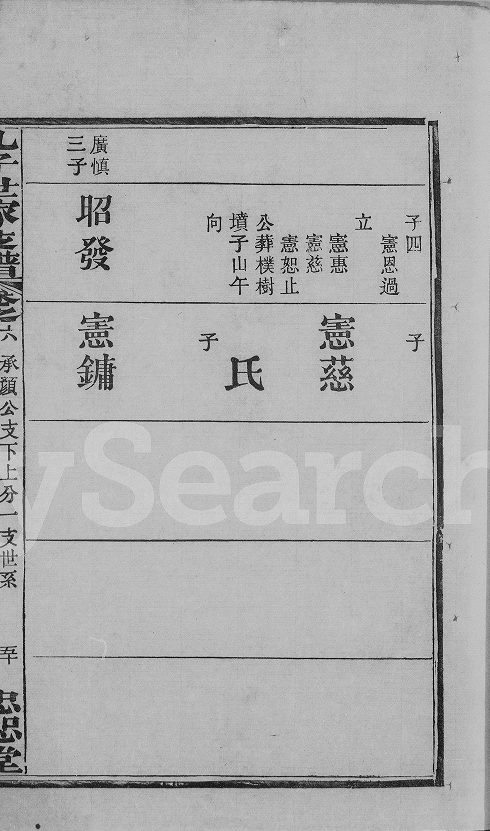 子四
憲恩過
立
憲惠
憲慈
憲恕止
公葬樸樹
墳子山午
向
子
憲慈
氏
子
廣慎
三子
昭發
憲鏞
世家支譜卷之六
承顔公支下上分一支世系
五十
忠恕堂
ySearch